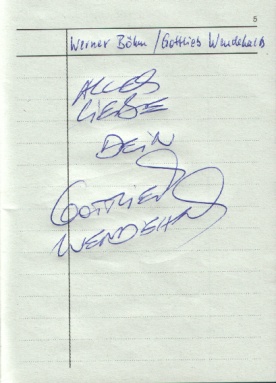 5
Werner Böhm / Gottlieb Wendehals
ALLES
LIEBE
DEIN
GOTTLIEB
WENDEHALS